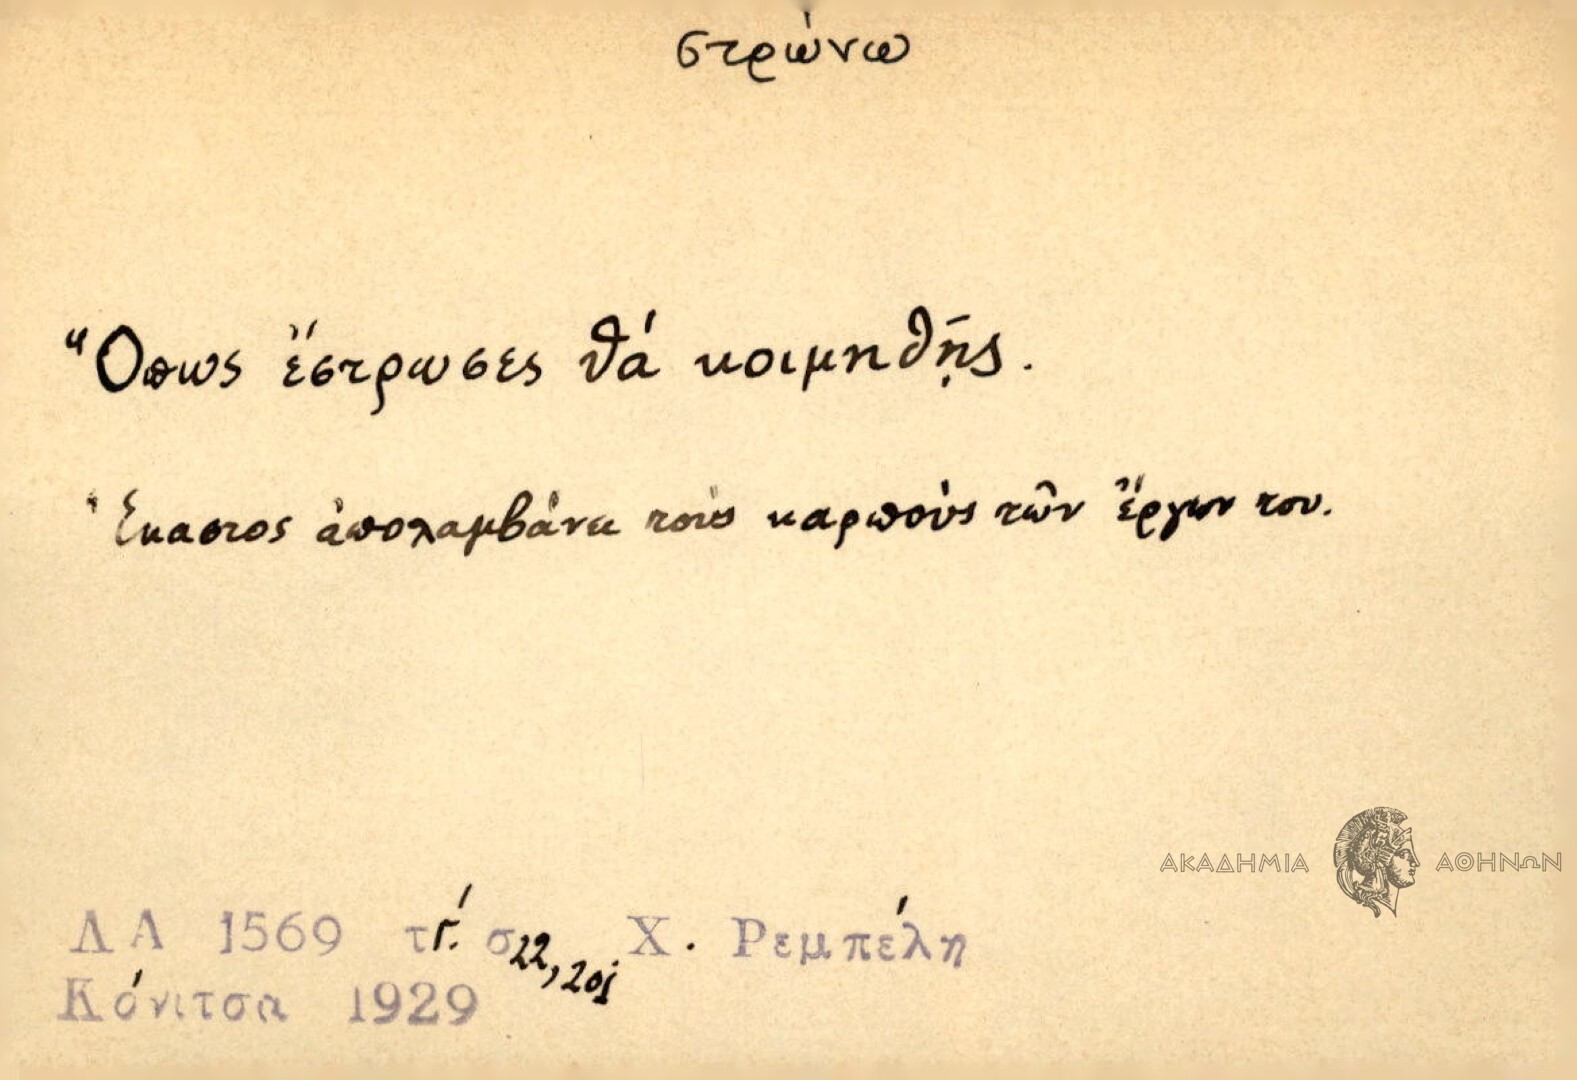 στρώνω
Ὅπως ἔστρωσες θά κοιμηθῇς.
Ἕκαστος ἀπολαμβάνει τούς καρπούς τῶν ἔργων του.
ΑΚΑΔΗΜΙΑ ΑΘΗΝΩΝ
ΛΑ 1569 τΓ΄. σ22, Χ. Ρεμπέλη
Κόνιτσα 1929